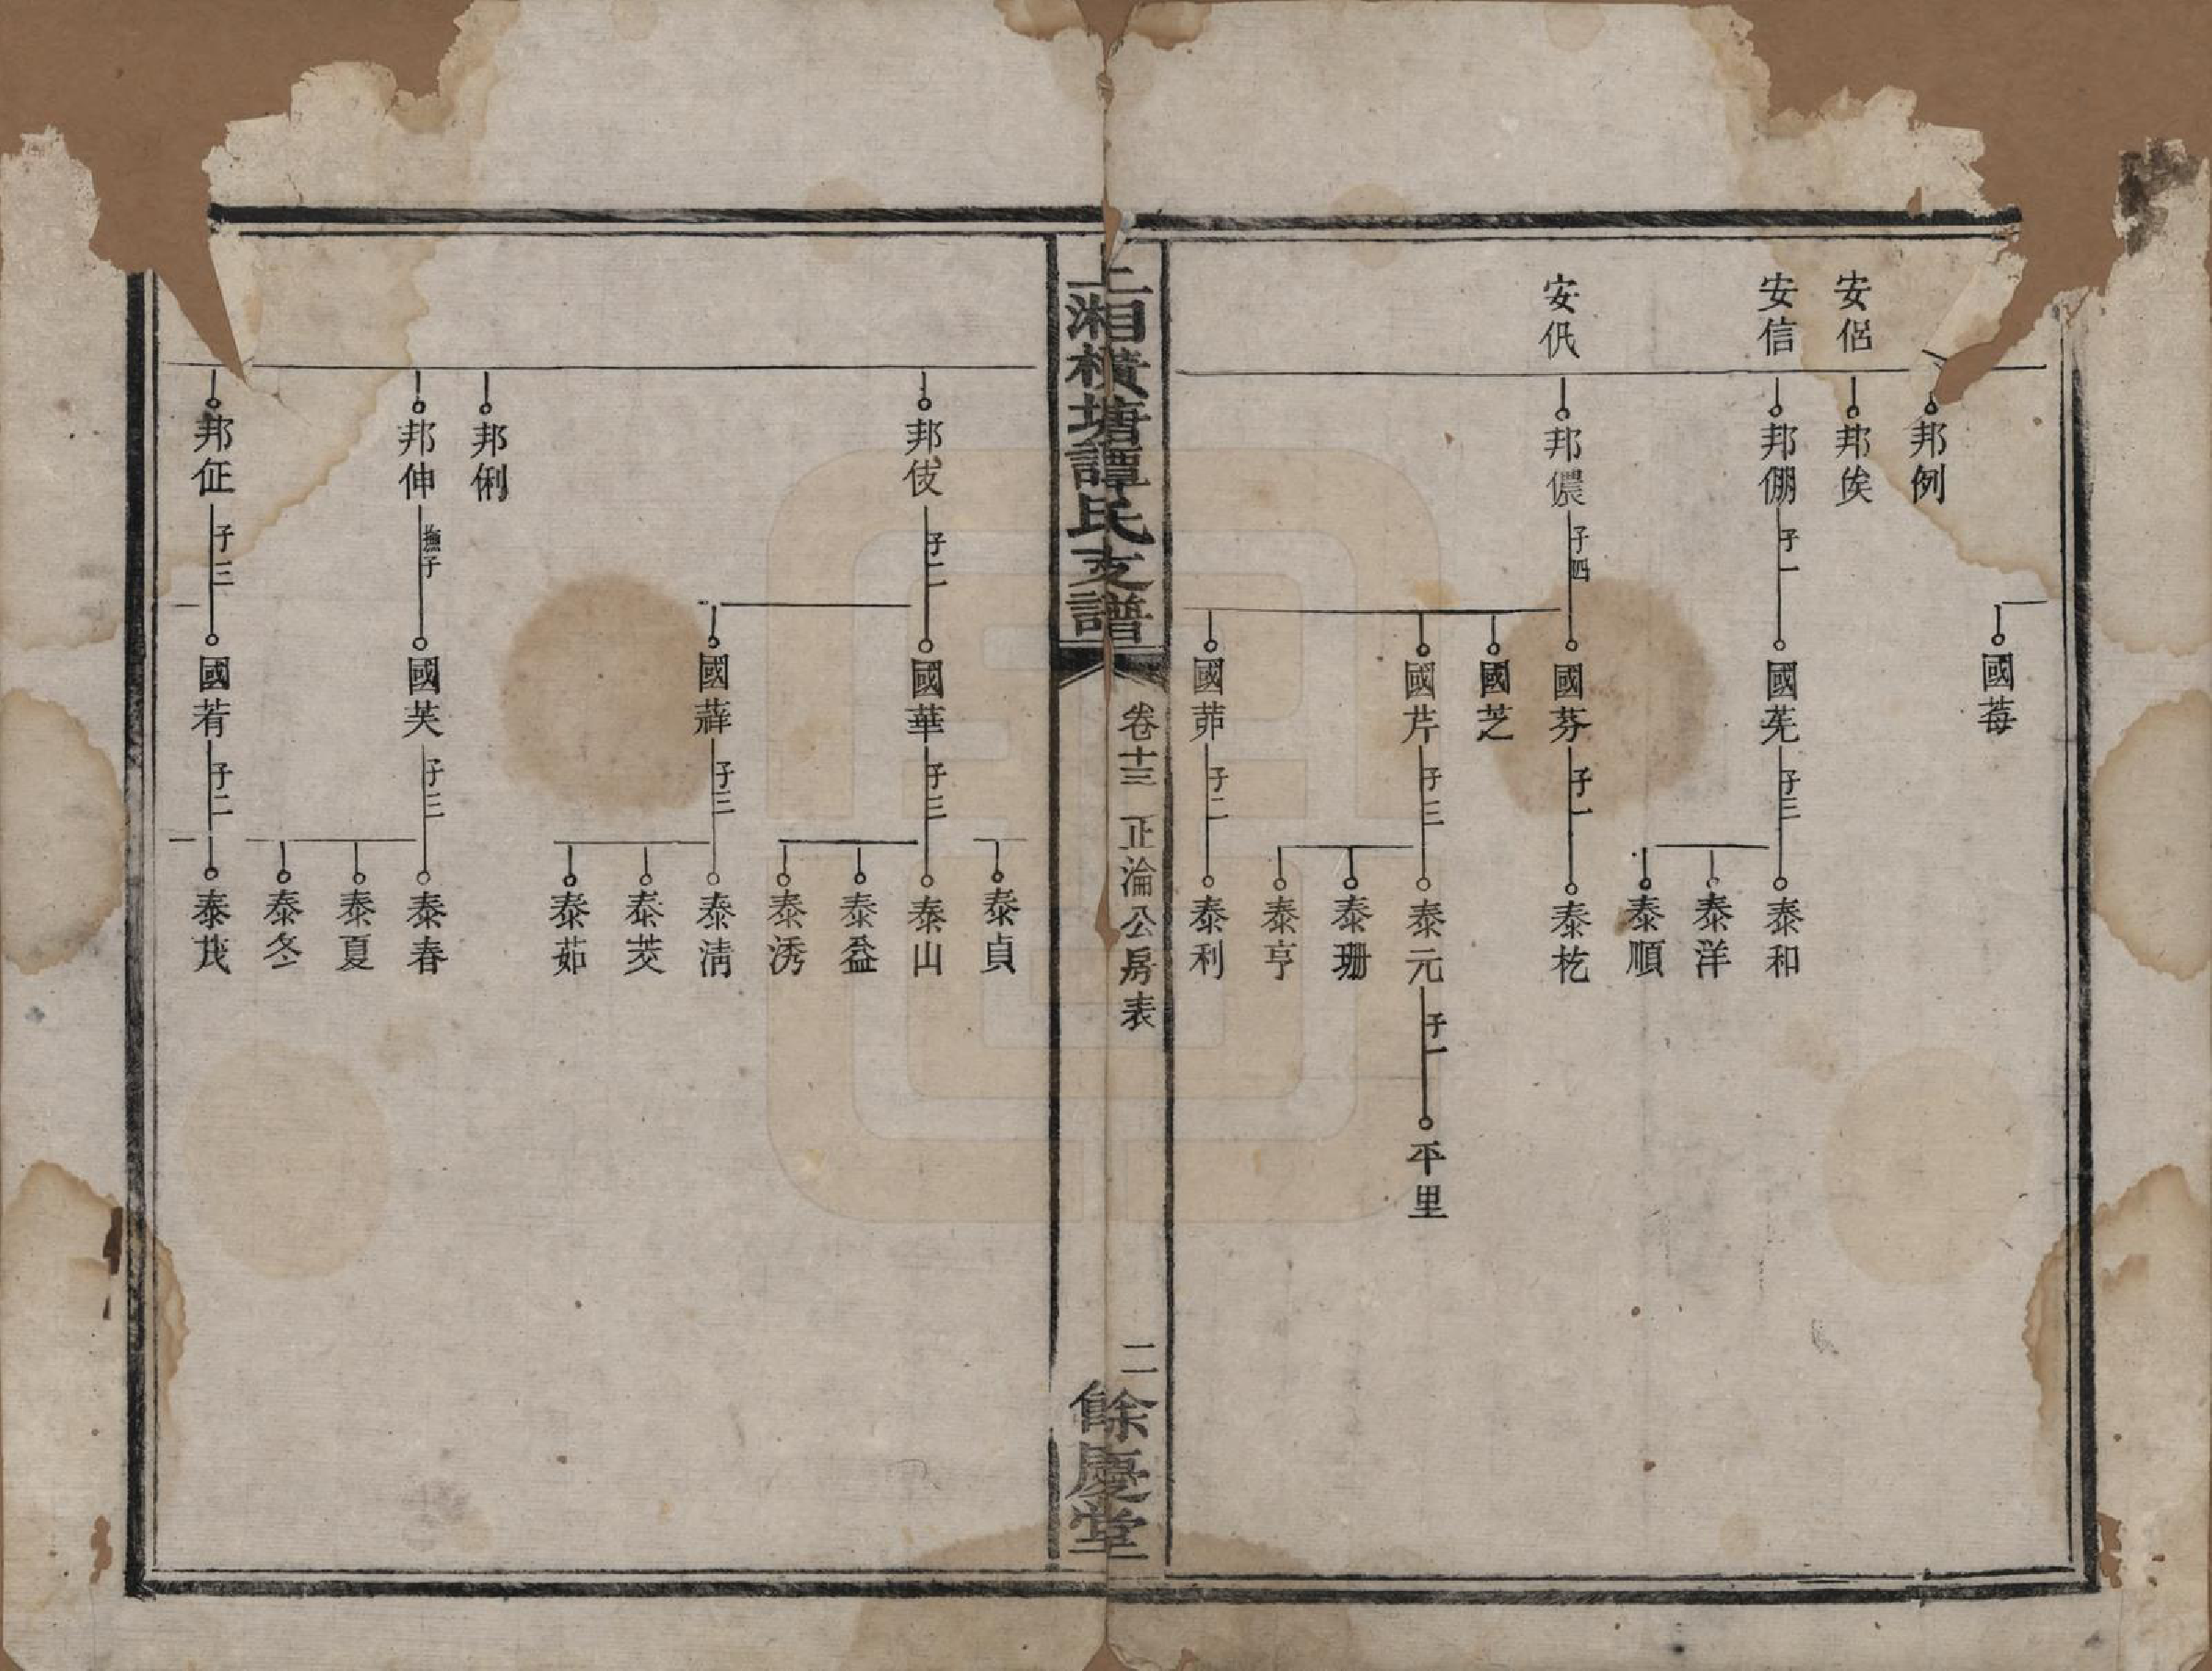 國莓
邦例
安侶
邦俟
安信
邦倗 子一
國茪 子三
泰和
泰洋
泰順
安仉
邦儂 子四
國芬 子一
泰杚
國芝
國芹 子三
泰元 子一
平里
泰珊
泰亨
國茆 子二
泰利
上湘橫塘譚氏支譜
卷十三 正淪公房表
二
餘慶堂
泰貞
邦伎 子二
國華 子三
泰山
泰益
泰湧
國薜 子三
泰淸
泰茭
泰茹
邦俐
邦伸 撫子
國芙 子三
泰春
泰夏
泰冬
邦征 子三
國若 子二
泰茂